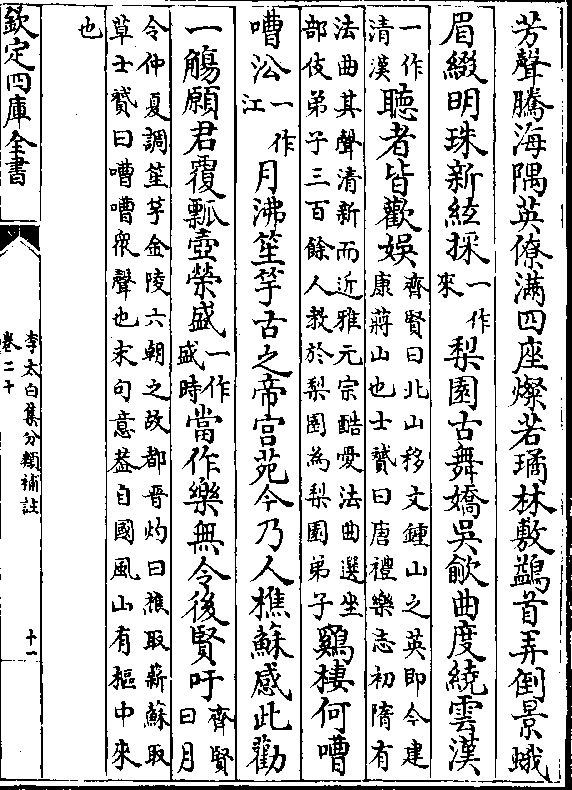 芳聲騰海隅英僚滿四座燦若瓊林敷鷁首弄倒景蛾
眉綴明珠新絃採一作來梨園古舞嬌吳歈曲度繞雲漢
一作清漢聽者皆歡娛齊賢曰北山移文鍾山之英即今建康蔣山也士贇曰唐禮樂志初隋有
法曲其聲清新而近雅元宗酷愛法曲選坐部伎弟子三百餘人教於梨園為梨園弟子鷄棲何嘈
嘈沿一作江月沸笙竽古之帝宫苑今乃人樵蘇感此勸
一觴願君覆瓢壺榮盛一作盛時當作樂無令後賢吁齊賢曰月
令仲夏調笙竽金陵六朝之故都晋灼曰樵取薪蘇取
草士贇曰嘈嘈衆聲也末句意葢自國風山有樞中來
也
欽定四庫全書
李太白集分類補註
卷二十
十一